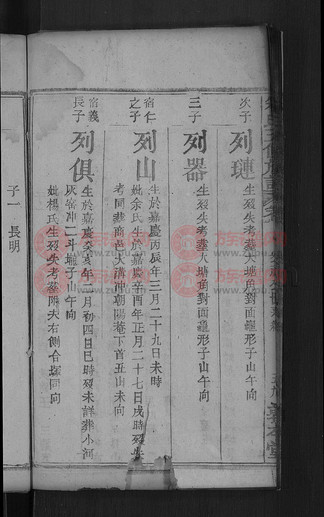 次子
列璉
生歿失考塟大塘角對面龜形子山午向
三子
列器
生歿失考塟大塘角對面龜形子山午向
宿仁
之子
列山
生於嘉慶丙辰年三月二十九日未時
妣余氏生於嘉慶辛酉年正月二十七日戌時歿失
考同塟商邑大溝冲朝陽菴下首丑山未向
宿義
長子
列俱
生於嘉慶癸亥年二月初四日巳時歿未詳塟小河
灰窑冲二斗坵子山午向
妣楊氏生歿失考塟附夫右側合塚同向
子一 長明